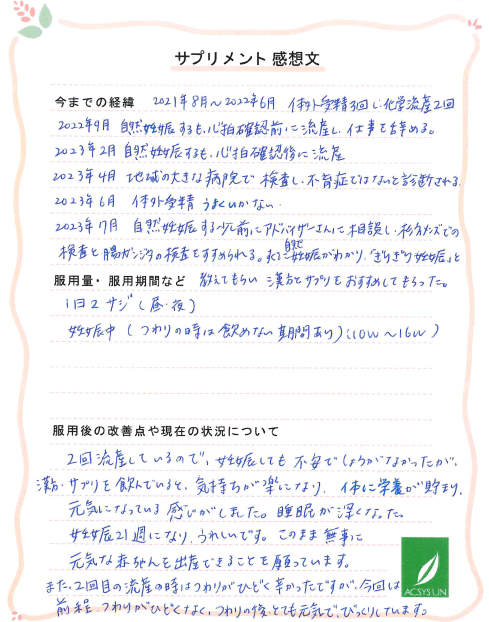 サプリメント 感想文
今までの経緯 2021年8月〜2022年6月 体外受精3回し、化学流産2回
2022年9月 自然妊娠するも、心拍確認前に流産し、仕事を辞める。
2023年2月 自然妊娠するも、心拍確認後に流産
2023年4月 地域の大きな病院で検査し、不育症ではないと診断される。
2023年6月 体外受精 うまくいかない。
2023年7月 自然妊娠する少し前にアドバイザーさんに相談し、杉ウィメンズでの
検査と腸カンジダの検査をすすめられる。次に自然妊娠がわかり、「ぎりぎり妊娠」と
服用量・服用期間など 教えてもらい 漢方とサプリをおすすめしてもらった。
1日2サジ（昼・夜）
妊娠中（つわりの時は飲めない期間あり）（10W〜16W）
服用後の改善点や現在の状況について
2回流産しているので、妊娠しても不安でしょうがなかったが、
漢方・サプリを飲んでいると、気持ちが楽になり、体に栄養が貯まり、
元気になっている感じがしました。睡眠が深くなった。
妊娠21週になり、うれしいです。このまま無事に
元気な赤ちゃんを出産できることを願っています。
また、2回目の流産の時はつわりがひどく辛かったですが、今回は
前程、つわりがひどくなく、つわりの後、とても元気でびっくりしています。
ACSYSUN